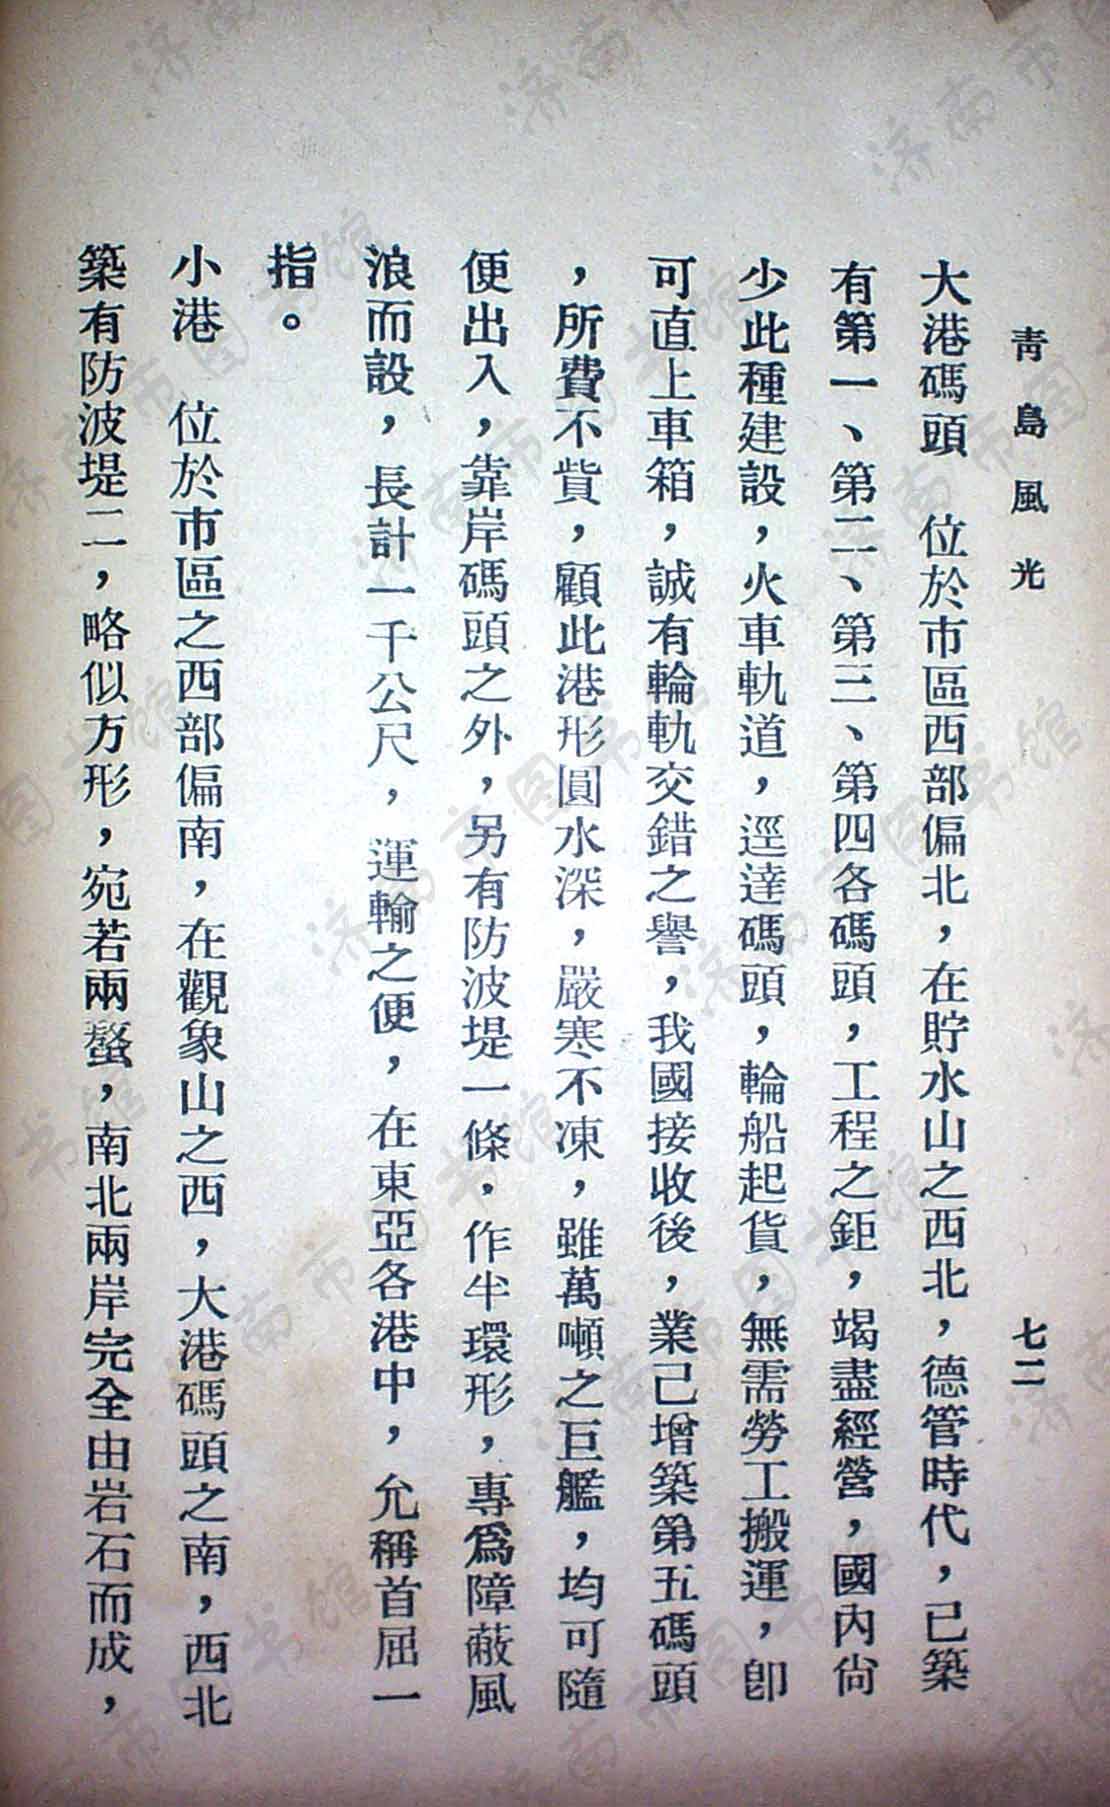 青島風光
七二
大港碼頭　位於市區西部偏北，在貯水山之西北，德管時代，已築
有第一、第二、第三、第四各碼頭，工程之鉅，竭盡經營，國內尙
少此種建設，火車軌道，逕達碼頭，輪船起貨，無需勞工搬運，卽
可直上車箱，誠有輪軌交錯之譽，我國接收後，業已增築第五碼頭
，所費不貲，顧此港形圓水深，嚴寒不凍，雖萬噸之巨艦，均可隨
便出入，靠岸碼頭之外，另有防波堤一條，作半環形，專爲障蔽風
浪而設，長計一千公尺，運輸之便，在東亞各港中，允稱首屈一
指。
小港　位於市區之西部偏南，在觀象山之西，大港碼頭之南，西北
築有防波堤二，略似方形，宛若兩螯，南北兩岸完全由岩石而成，
济南市图书馆